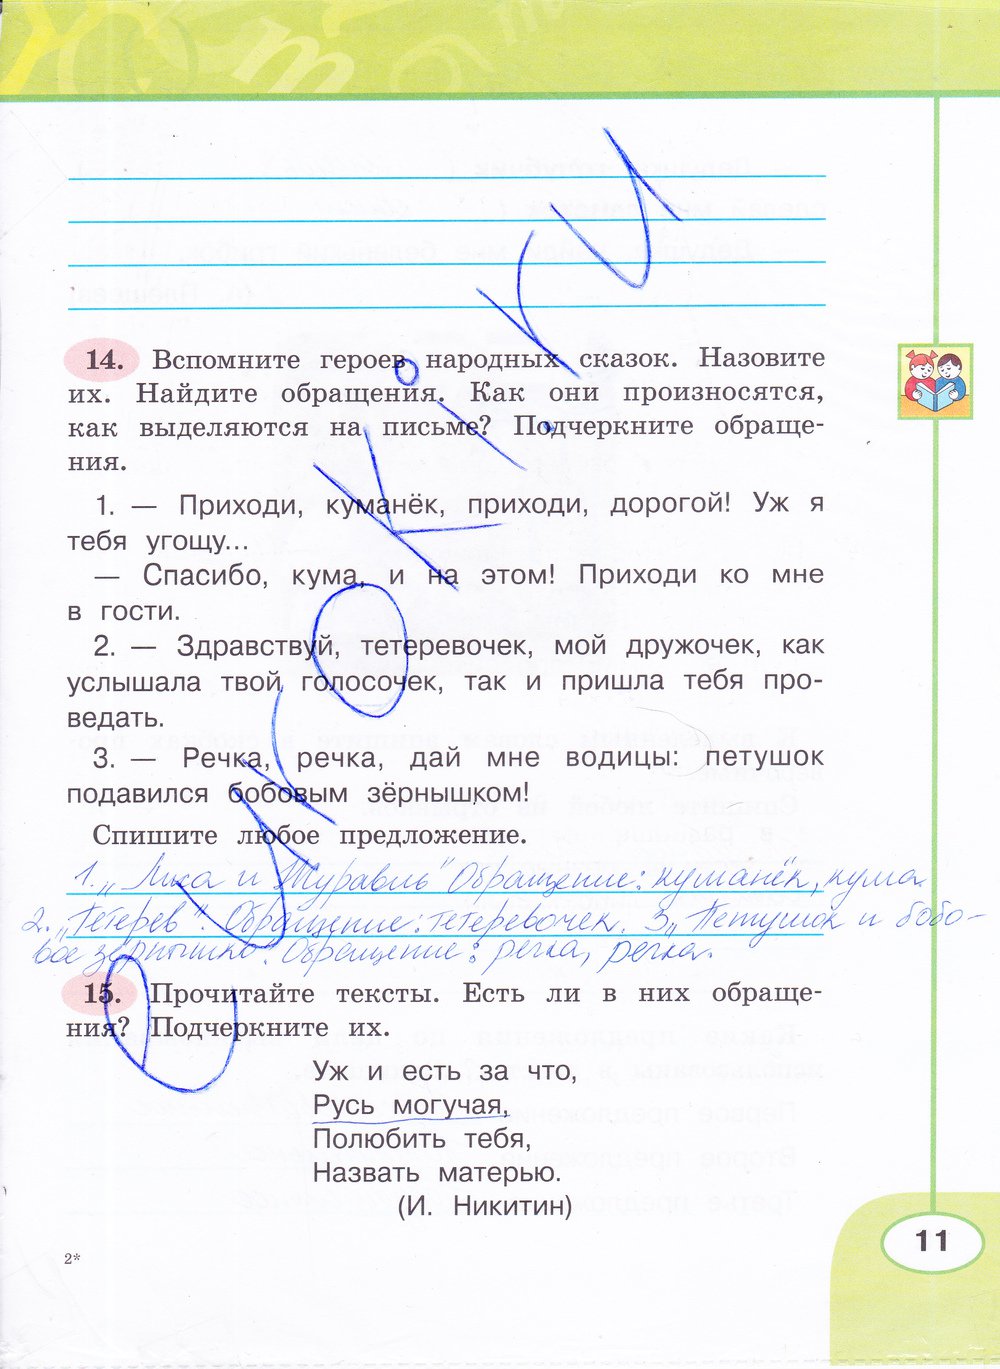 14. Вспомните героев народных сказок. Назовите
их. Найдите обращения. Как они произносятся,
как выделяются на письме? Подчеркните обраще-
ния.
1. — Приходи, куманёк, приходи, дорогой! Уж я
тебя угощу...
— Спасибо, кума, и на этом! Приходи ко мне
в гости.
2. — Здравствуй, тетеревочек, мой дружочек, как
услышала твой голосочек, так и пришла тебя про-
ведать.
3. — Речка, речка, дай мне водицы: петушок
подавился бобовым зёрнышком!
Спишите любое предложение.
1. „Лиса и Журавль" Обращение: куманёк, кума
2. „Тетерев". Обращение: тетеревочек. 3. „Петушок и бобо-
вое зёрнышко". Обращение: речка, речка.
15. Прочитайте тексты. Есть ли в них обраще-
ния? Подчеркните их.
Уж и есть за что,
Русь могучая,
Полюбить тебя,
Назвать матерью.
(И. Никитин)
11
2*
urokki.ru